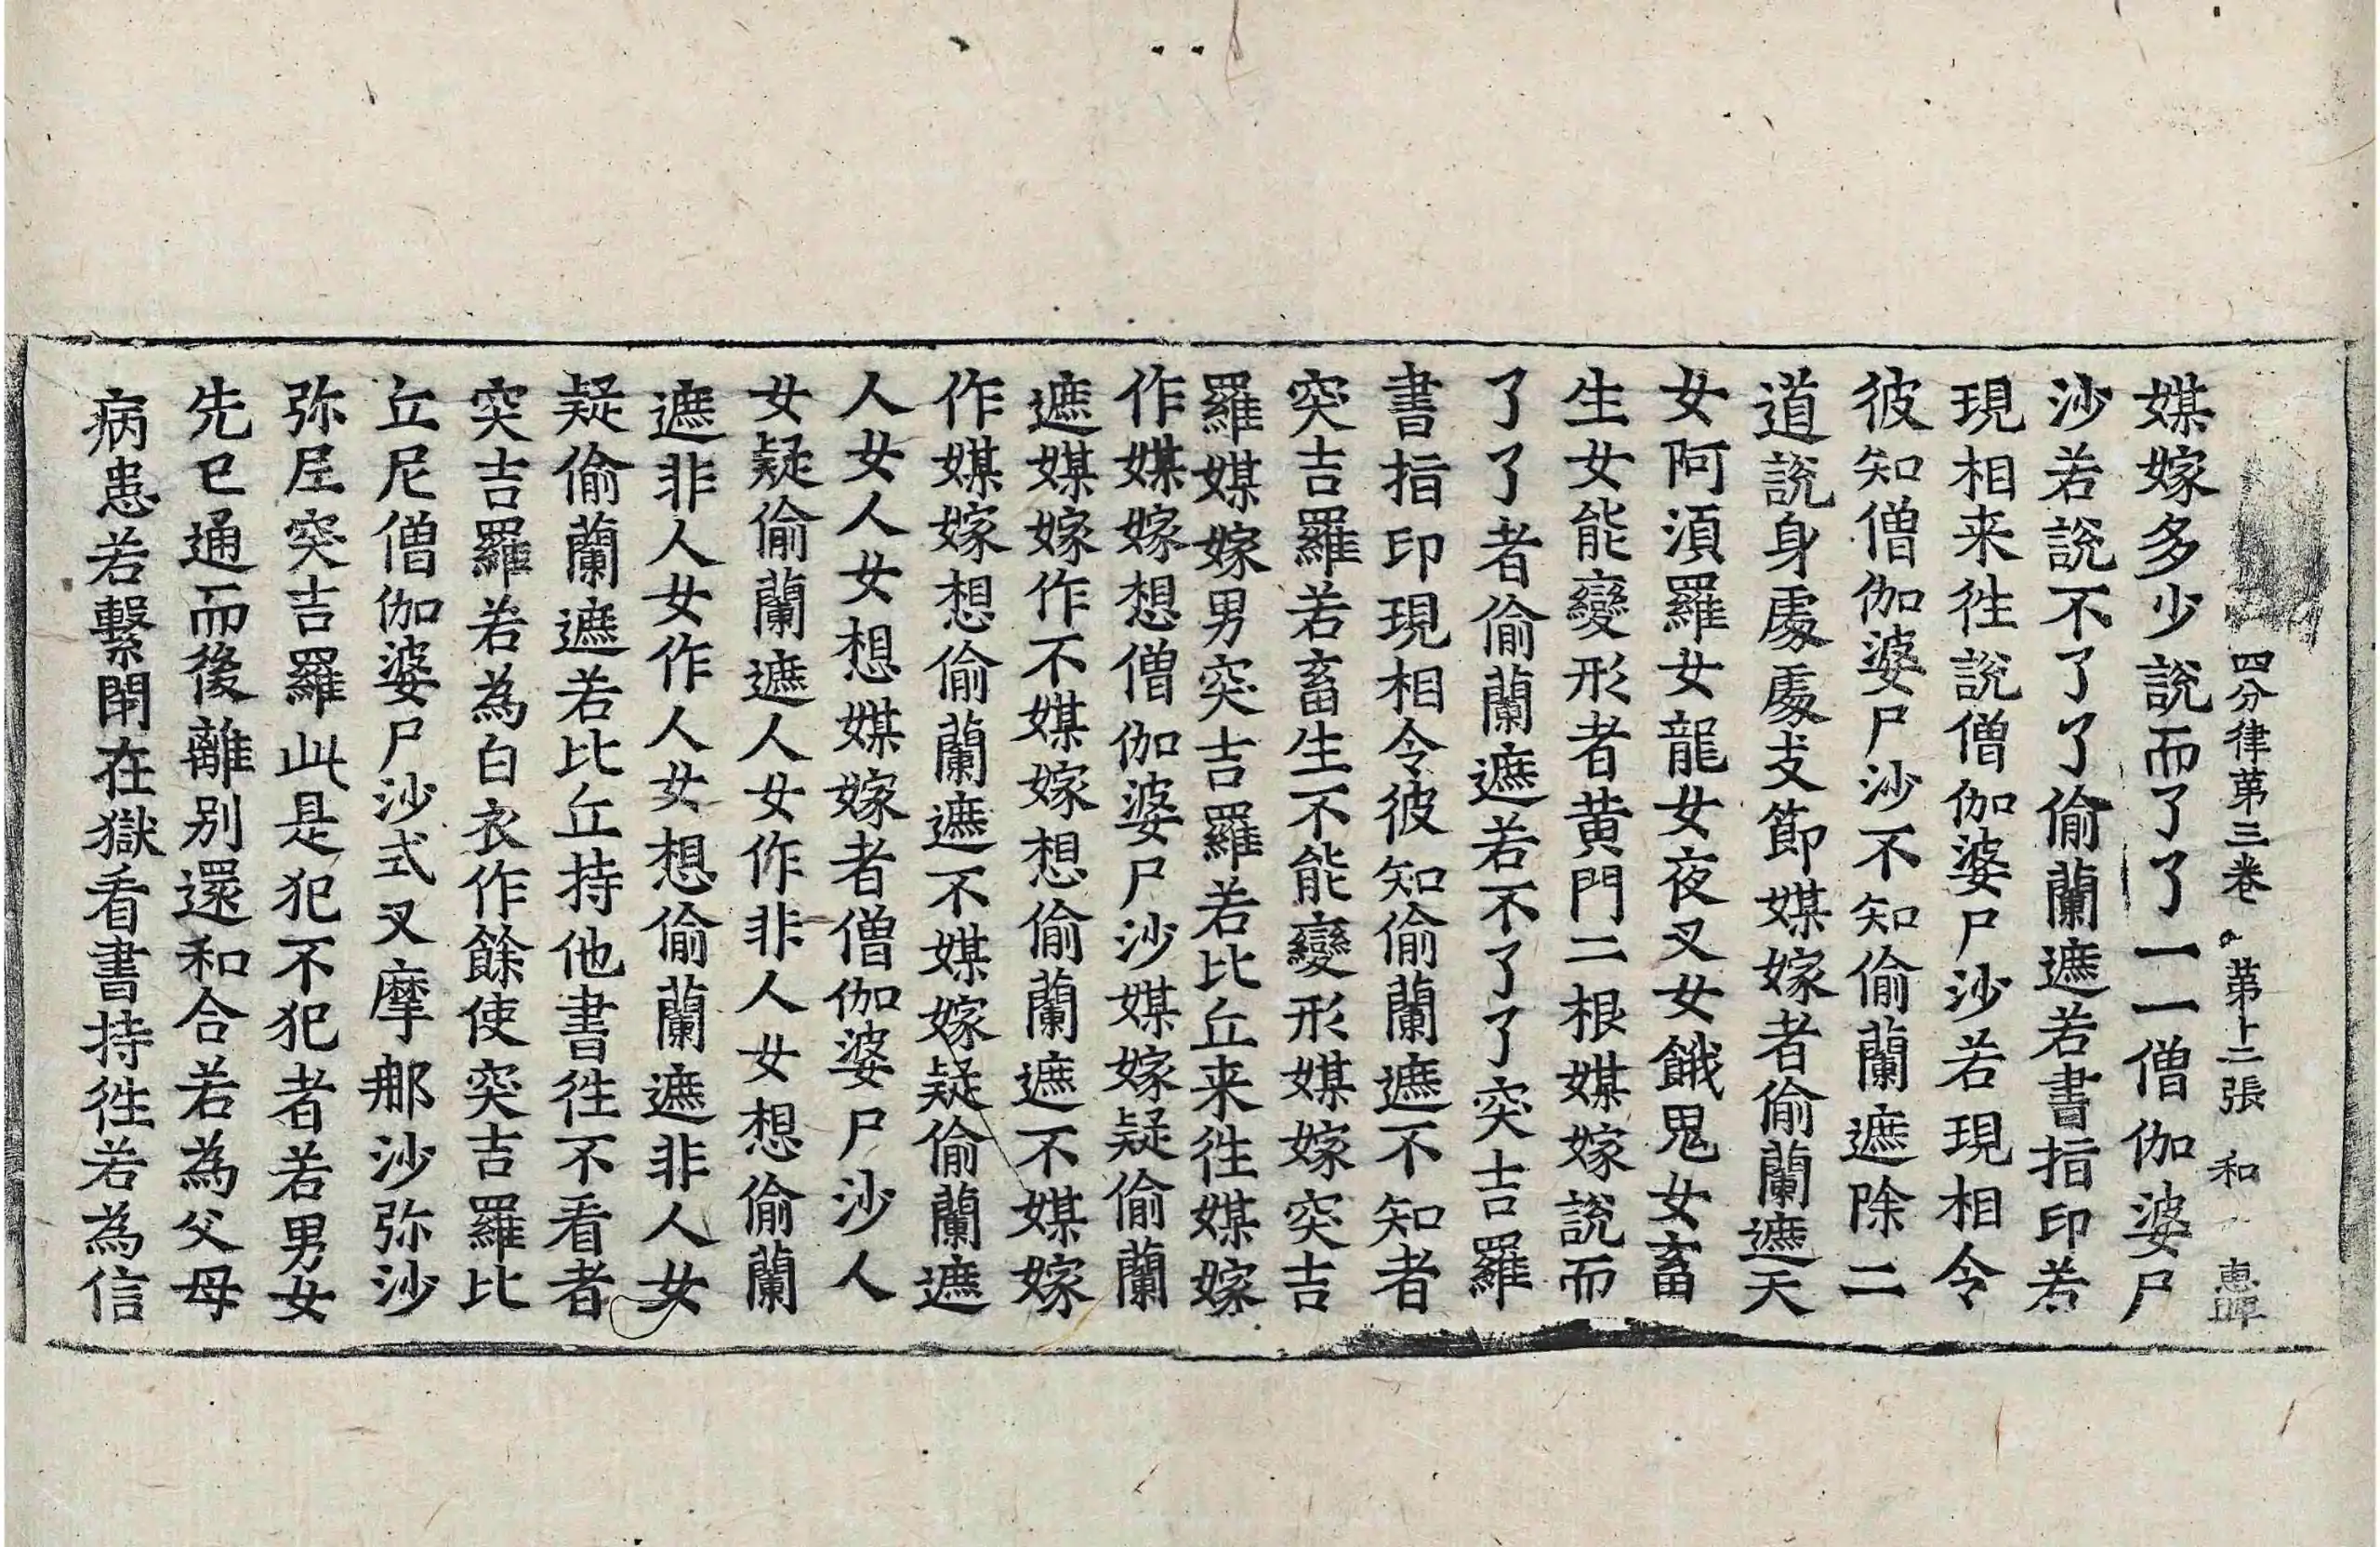 四分律第三卷 第十二張 和 惠岬
媒嫁多少說而了了一一僧伽婆尸
沙若說不了了偷蘭遮若書指印若
現相来往說僧伽婆尸沙若現相令
彼知僧伽婆尸沙不知偷蘭遮除二
道說身處處支節媒嫁者偷蘭遮天
女阿須羅女龍女夜叉女餓鬼女畜
生女能變形者黄門二根媒嫁說而
了了者偷蘭遮若不了了突吉羅
書指印現相令彼知偷蘭遮不知者
突吉羅若畜生不能變形媒嫁突吉
羅媒嫁男突吉羅若比丘来往媒嫁
作媒嫁想僧伽婆尸沙媒嫁疑偷蘭
遮媒嫁作不媒嫁想偷蘭遮不媒嫁
作媒嫁想偷蘭遮不媒嫁疑偷蘭遮
人女人女想媒嫁者僧伽婆尸沙人
女疑偷蘭遮人女作非人女想偷蘭
遮非人女作人女想偷蘭遮非人女
疑偷蘭遮若比丘持他書往不看者
突吉羅若為白衣作餘使突吉羅比
丘尼僧伽婆尸沙式叉摩那沙弥沙
弥尼突吉羅此是犯不犯者若男女
先已通而後離別還和合若為父母
病患若繫閉在獄看書持往若為信